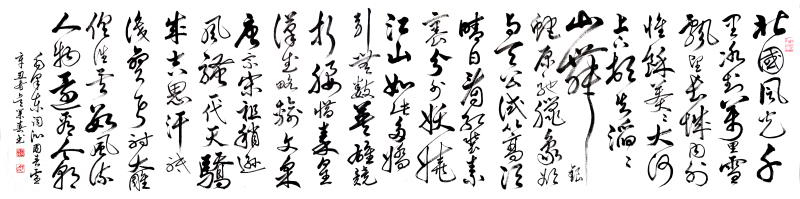 北國風光千
里冰封萬里雪
飄望長城內外
惟餘莽々大河
上下頓失滔々
山舞銀
蛇原馳蠟象欲
與天公試比高須
晴日看紅裝素
裹分外妖嬈
江山如此多嬌
引無數英雄競
折腰惜秦皇
漢武略輸文采
唐宗宋祖稍遜
風騷一代天驕
成吉思汗祇
識彎弓射大雕
俱往矣數風流
人物還看今朝
毛澤東詞沁園春雪
辛丑春